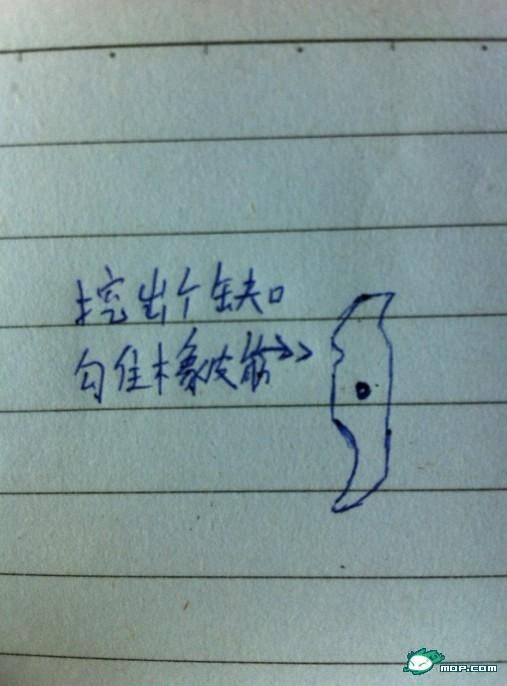 挖出个缺口
勾住橡皮筋>>
MOP.COM